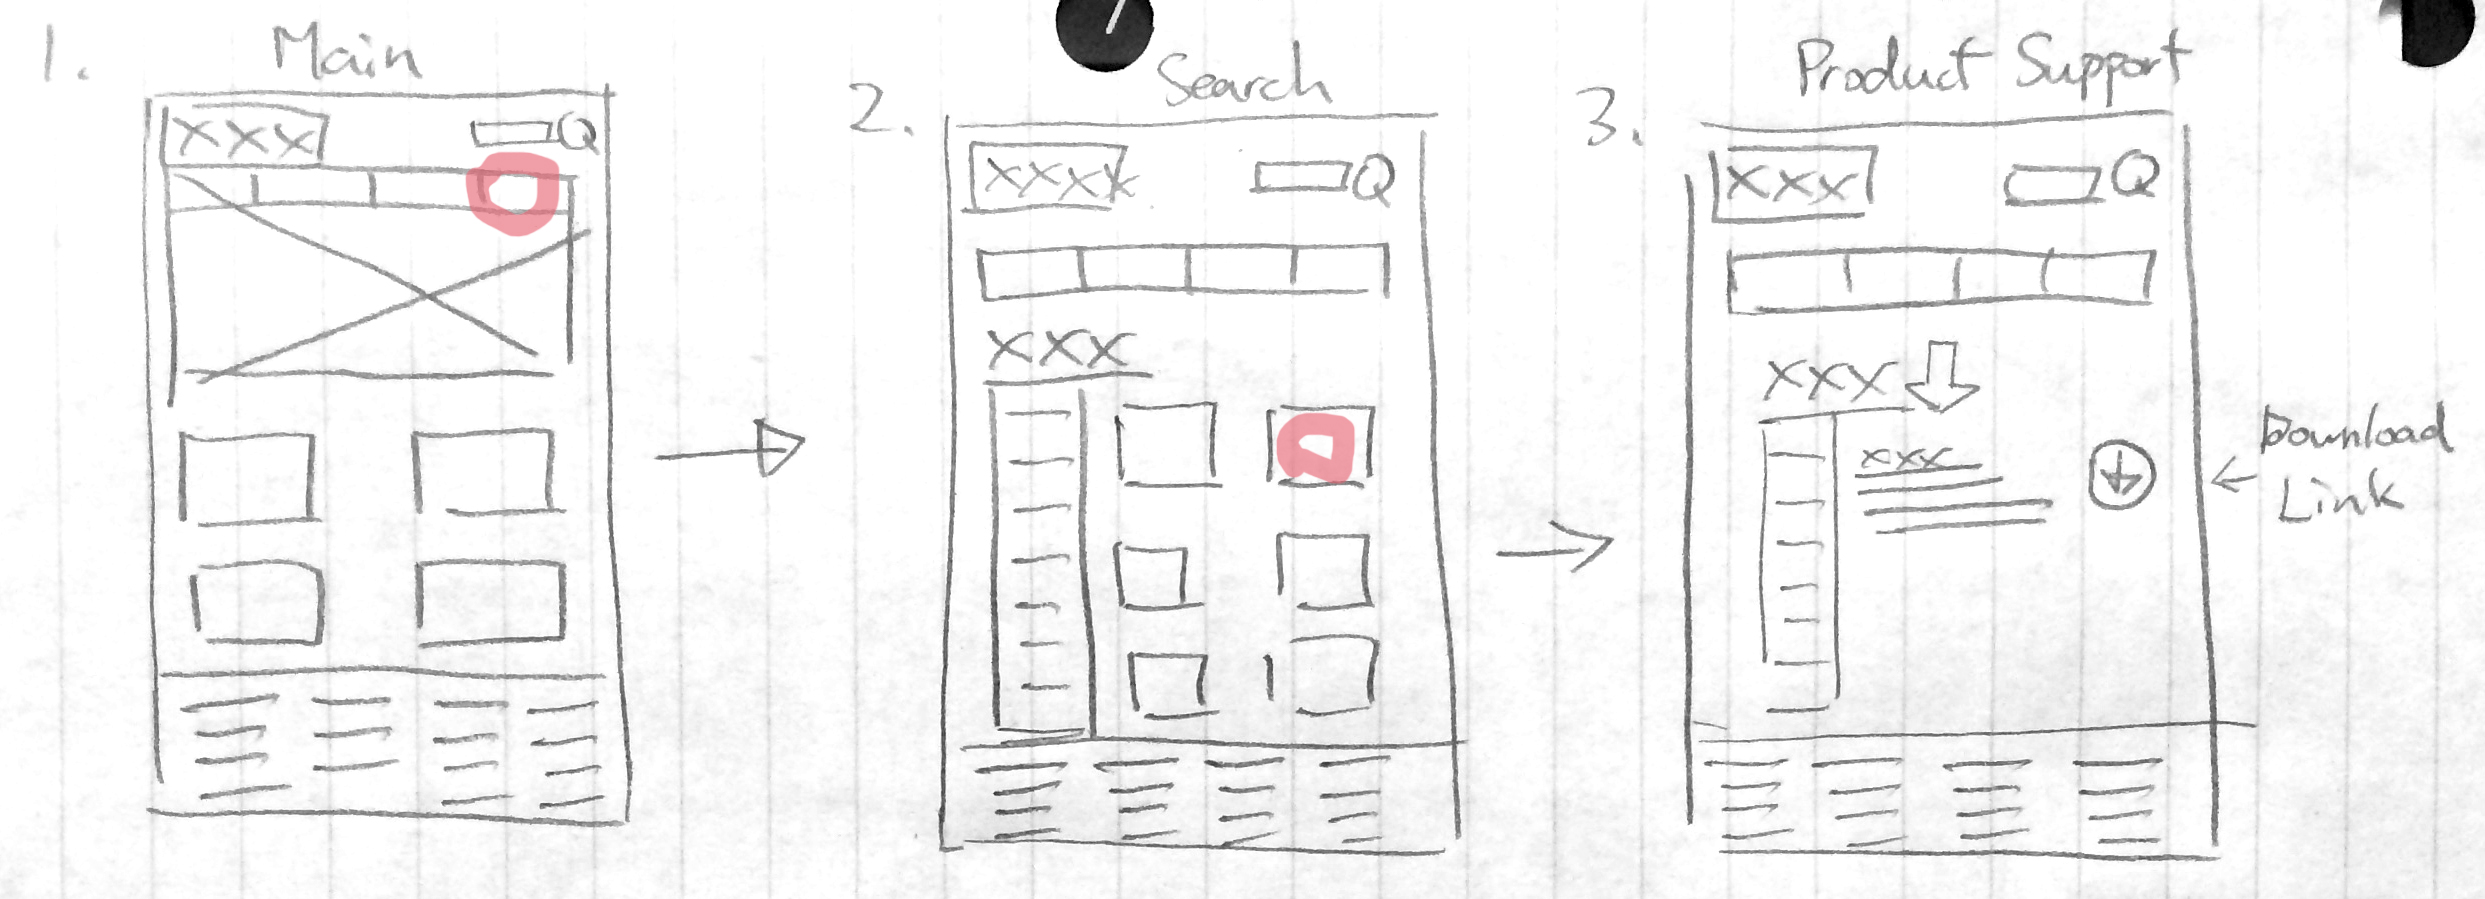 1.
Main
XXX
2.
Search
XXXX
XXX
3.
Product Support
XXX
XXX
XXX
Download
Link